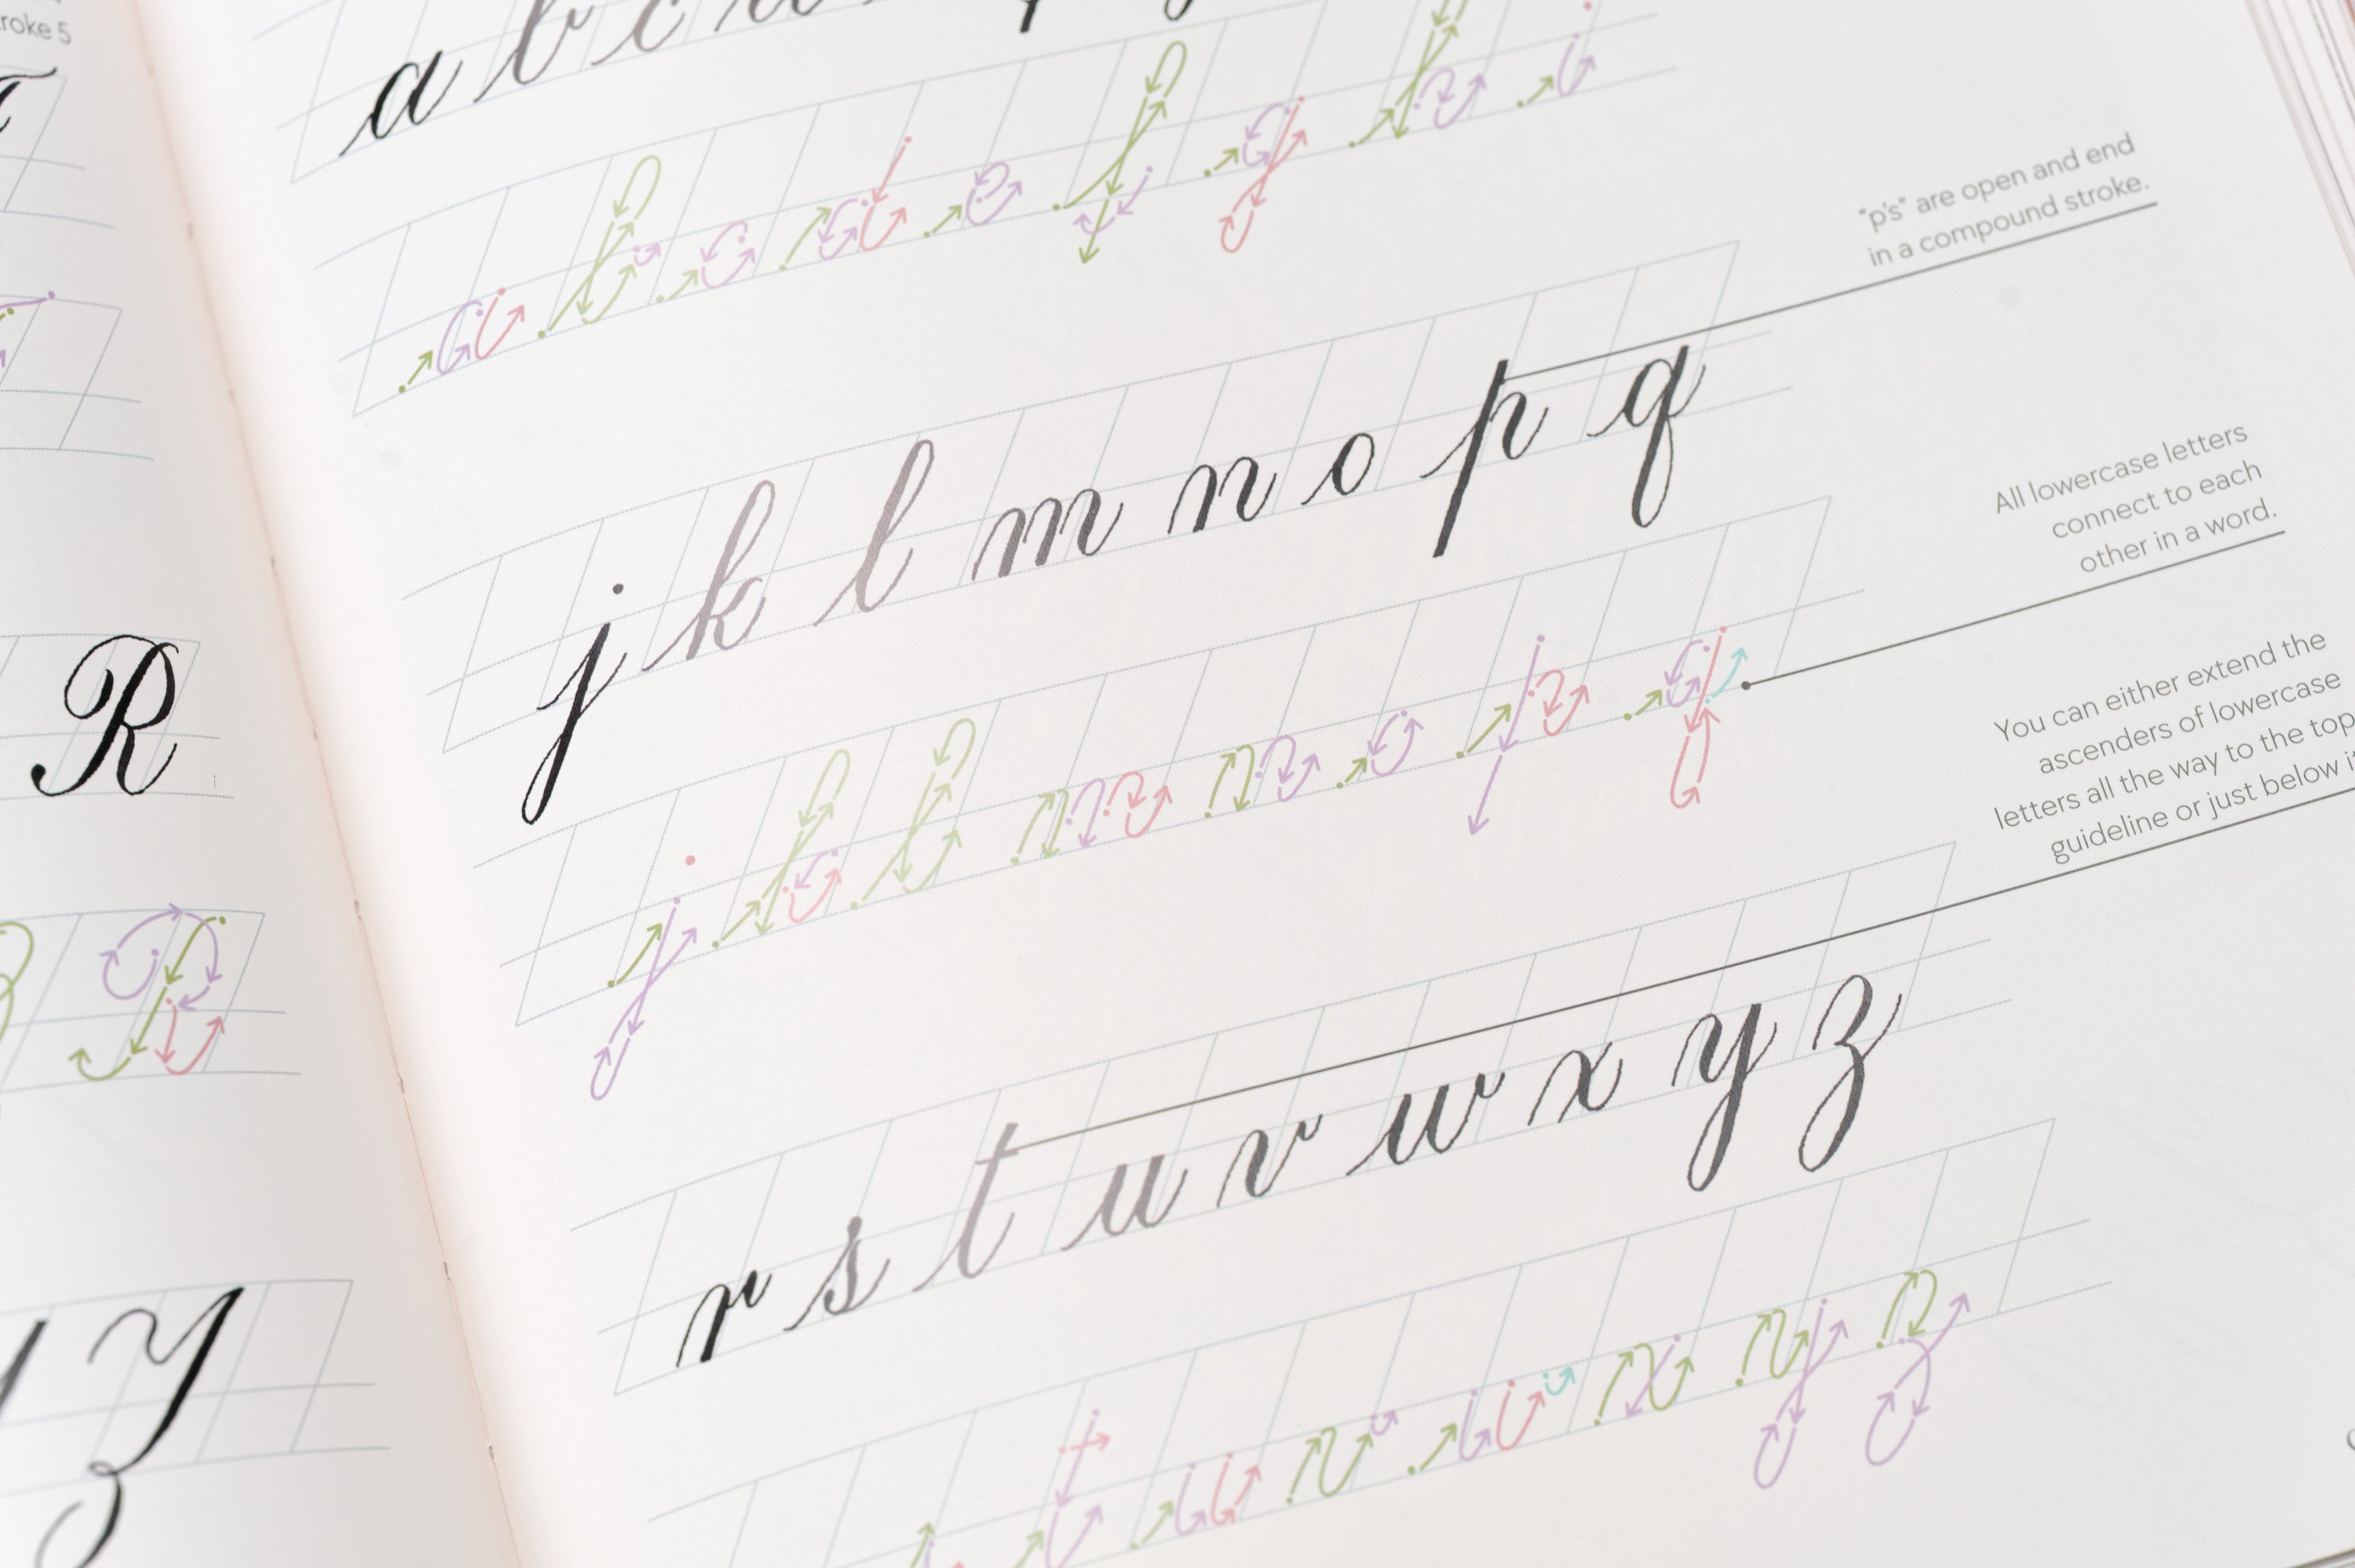 stroke 5
R
a b c
"p's" are open and end
in a compound stroke.
j k l m n o p q
All lowercase letters
connect to each
other in a word.
You can either extend the
ascenders of lowercase
letters all the way to the top
guideline or just below it
r s t u v w x y z